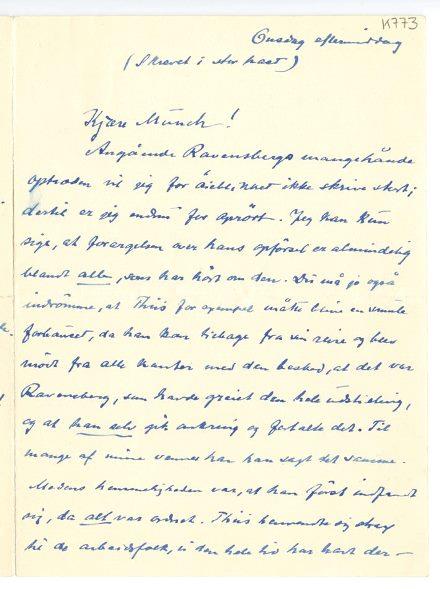 K773
Onsdag eftermiddag
(Skrevet i stor hast)
Kjære Munch!
Angående Ravensbergs mangehånde
optræden vil jeg for øieblikket ikke skrive stort;
dertil er jeg endnu for oprört. Jeg kan kun
sige, at forargelsen over hans opförsel er almindelig
blandt alle, som har hört om den. Du må jo også
indrömme, at Thiis for exempel måtte bline en smule
forbauset, da han kom tilbage fra sin reise og blev
mödt fra alle kanter med den besked, at det var
Ravensberg, som havde greiet den hele udstilling,
og at han selv gik omkring og fortalte det. Til
mange af mine venner har han sagt det samme.
Medens hemmeligheden var, at han först indfandt
sig, da alt var ordnet. Thiis henvendte sig strax
til de arbeidsfolk, vi den hele tid har havt der-